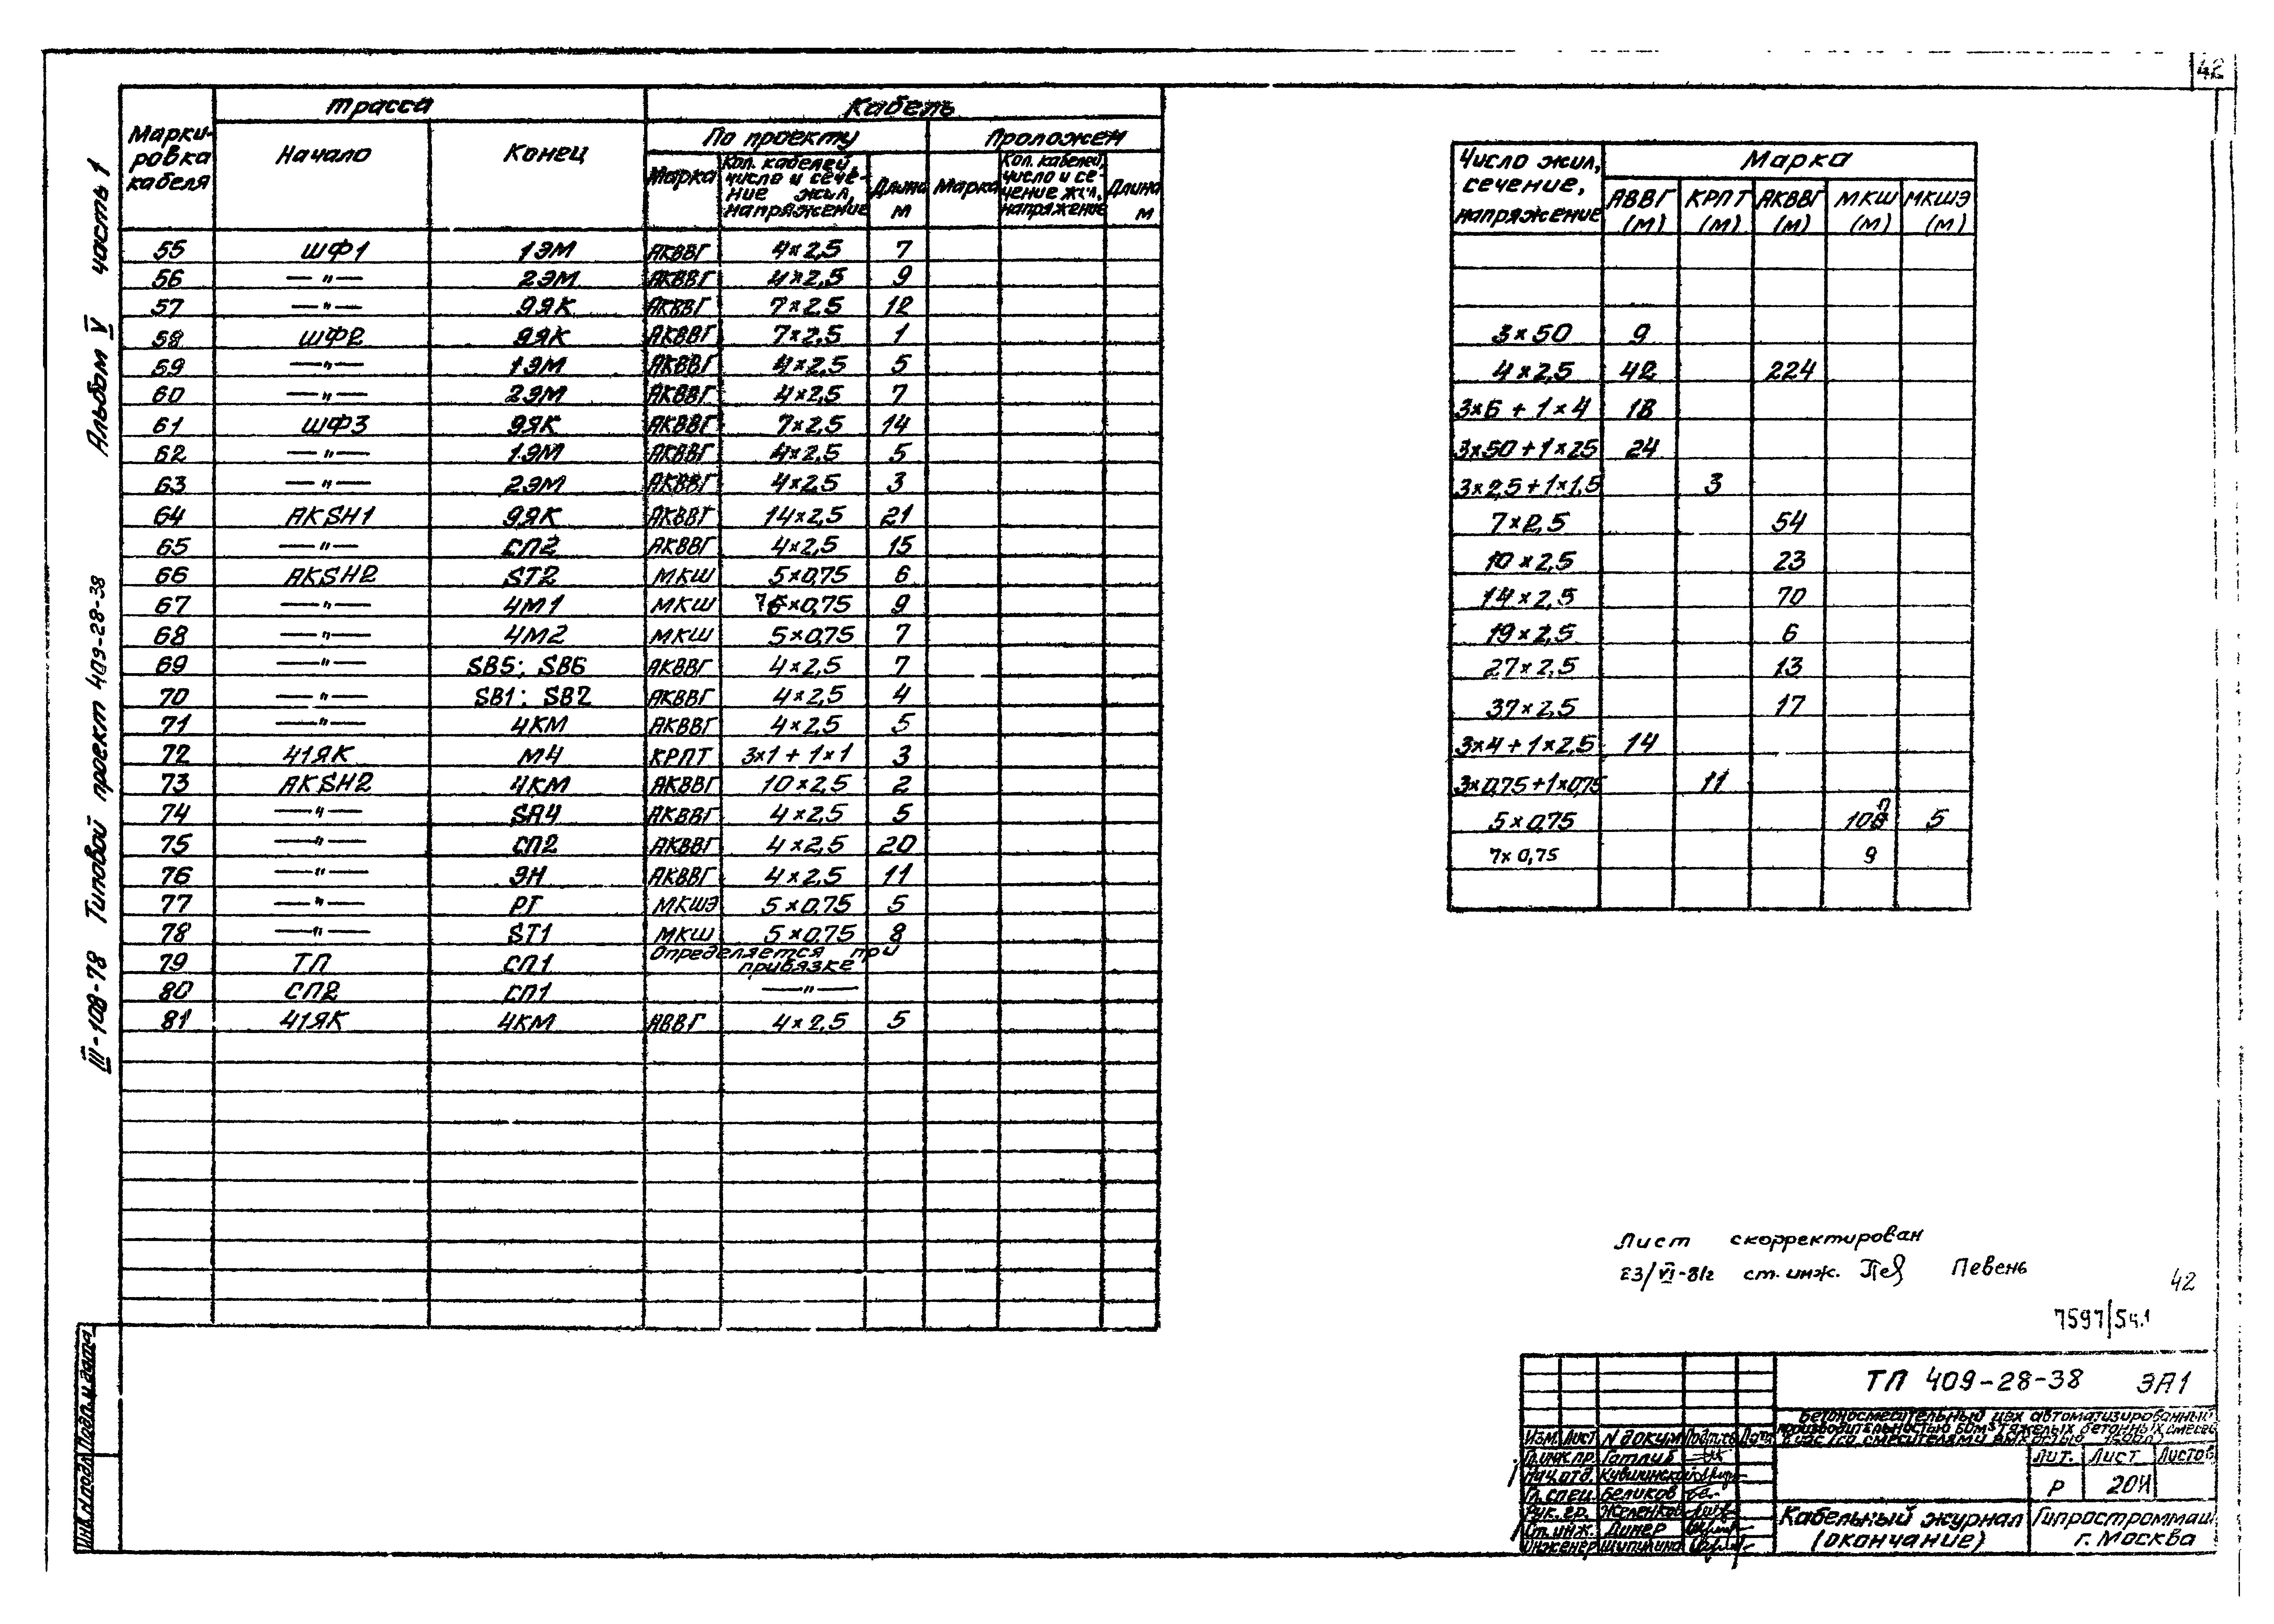 42
Альбом V часть 1
III-108-78 Типовой проект 409-28-38
Марки-ровка кабеля | Трасса | Кабель
Начало | Конец | По проекту | Проложен
Марка | Кол. кабелей, число и сече-ние жил, напряжение | Длина м | Марка | Кол. кабелей, число и се-чение жил, напряжение | Длина м
55 ШФ1 1ЭМ АКВВГ 4×2,5 7
56 —"— 2ЭМ АКВВГ 4×2,5 9
57 —"— 9ЯК АКВВГ 7×2,5 12
58 ШФ2 9ЯК АКВВГ 7×2,5 1
59 —"— 1ЭМ АКВВГ 4×2,5 5
60 —"— 2ЭМ АКВВГ 4×2,5 7
61 ШФ3 9ЯК АКВВГ 7×2,5 14
62 —"— 1ЭМ АКВВГ 4×2,5 5
63 —"— 2ЭМ АКВВГ 4×2,5 3
64 AKSH1 9ЯК АКВВГ 14×2,5 21
65 —"— СП2 АКВВГ 4×2,5 15
66 AKSH2 ST2 МКШ 5×0,75 6
67 —"— 4М1 МКШ 7×0,75 9
68 —"— 4М2 МКШ 5×0,75 7
69 —"— SB5; SB6 АКВВГ 4×2,5 7
70 —"— SB1; SB2 АКВВГ 4×2,5 4
71 —"— 4КМ АКВВГ 4×2,5 5
72 41ЯК М4 КРПТ 3×1 + 1×1 3
73 AKSH2 4КМ АКВВГ 10×2,5 2
74 —"— SA4 АКВВГ 4×2,5 5
75 —"— СП2 АКВВГ 4×2,5 20
76 —"— ЭН АКВВГ 4×2,5 11
77 —"— РГ МКШЭ 5×0,75 5
78 —"— ST1 МКШ 5×0.75 8
79 ТП СП1 Определяется при привязке
80 СП2 СП1 —"—
81 41ЯК 4КМ АВВГ 4×2,5 5
Число жил, сечение, напряжение | Марка
АВВГ (м) | КРПТ (м) | АКВВГ (м) | МКШ (м) | МКШЭ (м)
3×50 9
4×2,5 42 224
3×6 + 1×4 18
3×50 + 1×25 24
3×2,5 + 1×1,5 3
7×2,5 54
10×2,5 23
14×2,5 70
19×2,5 6
27×2,5 13
37×2,5 17
3×4 + 1×2,5 14
3×0,75 + 1×0,75 11
5×0,75 5
7×0,75 9
Лист скорректирован
23/VI-81г ст. инж. Певень
42
7597/5ч.1
ТП 409-28-38 ЭА1
Бетоносмесительный цех автоматизированный
производительностью 60м³ тяжелых бетонных смесей
в час (со смесителями емкостью
Изм. Лист N докум Подпись Дата
Гл.инж.пр. Готлиб
Нач.отд.
Гл.спец. Беликов
Рук. гр. Желенков
Ст. инж. Динер
Инженер Шипилина
Лит. Лист Листов
Р 20
Кабельный журнал
(окончание)
Гипростроммаш
г. Москва
Инв.N подл. Подп. и дата